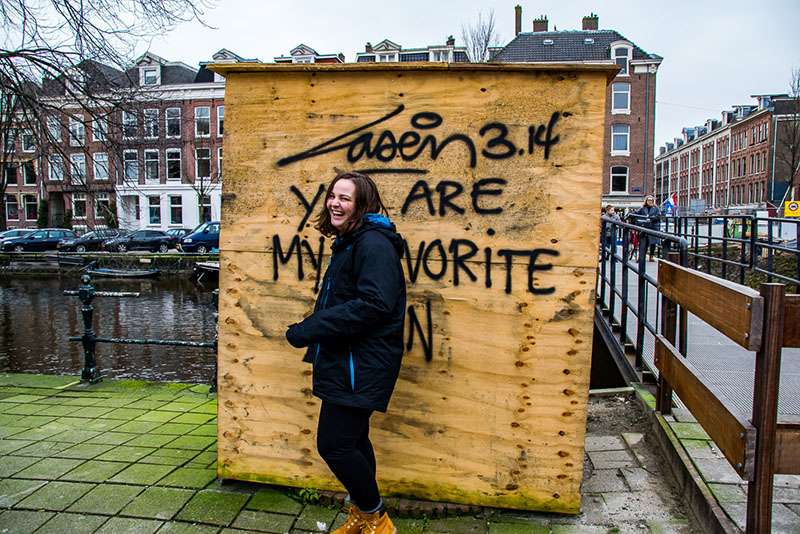 Laser 3.14
Y ARE
MY VORITE
N